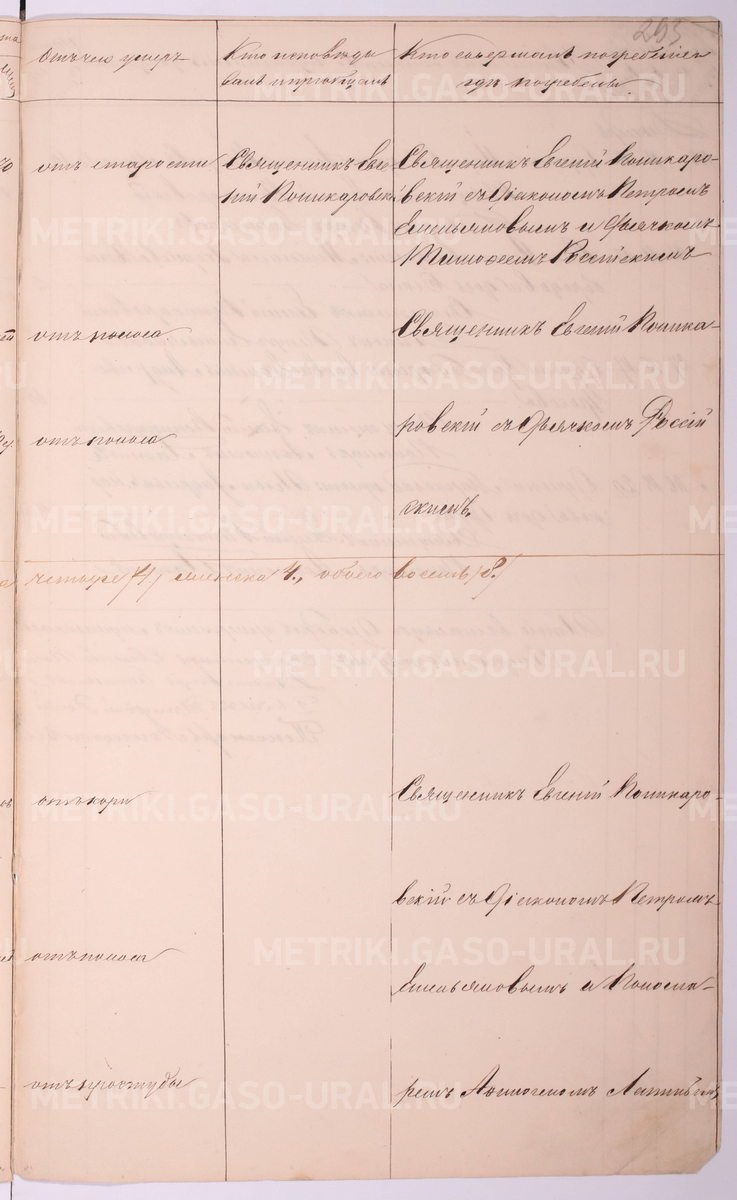 295
Отъ чего умеръ
Кто исповѣды
валъ и пріобщалъ
Кто совершалъ погребеніе и
гдѣ погребены.
отъ старости
Священникъ Евге
ній Поникаровскій
Священникъ Евгеній Поникаро-
вскій съ Діакономъ Петромъ
Емельяновымъ и Дьячкомъ
Тимофеемъ Россійскимъ
отъ поноса
Священникъ Евгеній Поника-
отъ поноса
ровскій съ Дьячкомъ Россій
скимъ.
четыре /4/, женска 4., обоего восемь /8./
отъ кори
Священникъ Евгеній Поникаро-
вскій съ Діакономъ Петромъ
отъ поноса
Емельяновымъ и Понома-
отъ простуды
ремъ
METRIKI.GASO-URAL.RU